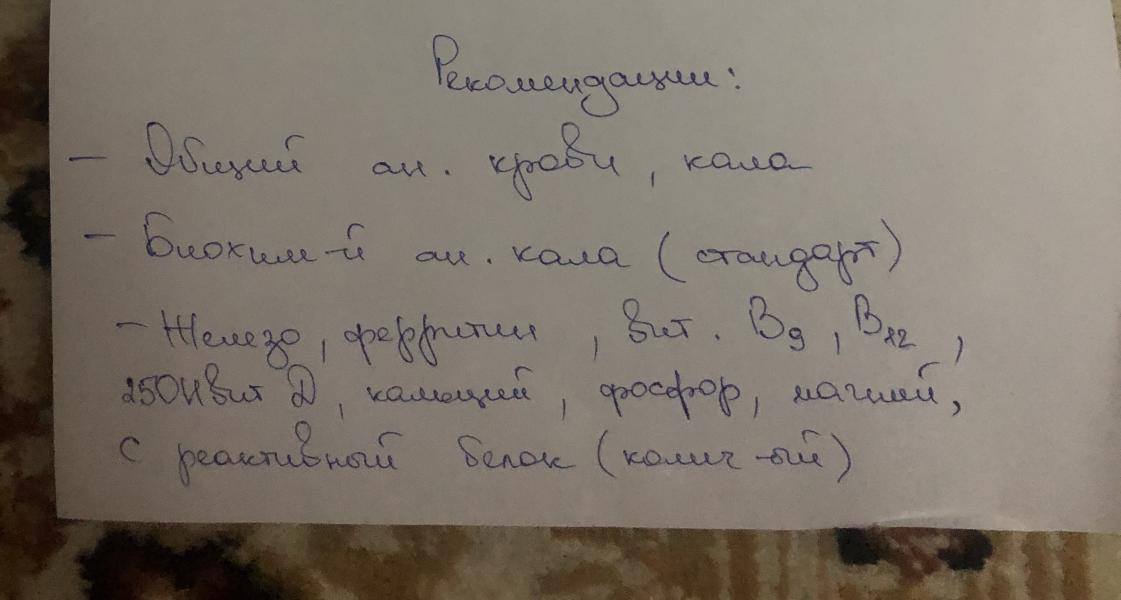 Рекомендации:
- Общий ан. крови, кала
- Биохим-й ан. кала (стандарт)
- Железо, ферритин, вит. B9, B12,
25OHвит D, кальций, фосфор, магний,
C реактивный белок (колич-ый)